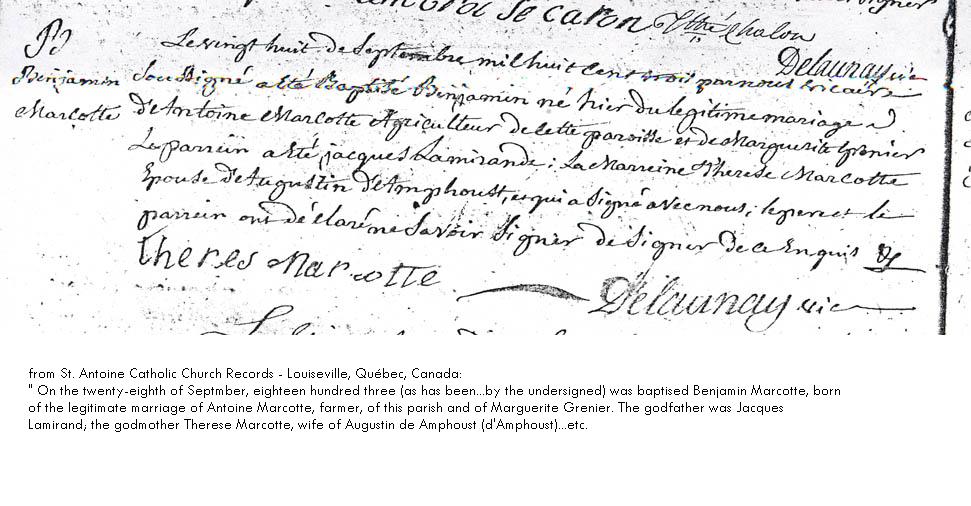 Se Caron
Delaunay vic
B
Benjamin
Marcotte
Le vingt huit de Septembre mil huit cent trois par nous vicaire
Sousigné a été Baptisé Benjamin né hier du legitime mariage
d'Antoine Marcotte Agriculteur de cette paroisse et de Marguerite Grenier
Le parrein a été jacques Lamirande; La Marreine Therese Marcotte
Epouse d'Augustin d'Amphoust, et qui a Signé avec nous; le pere et le
parrein ont déclaré ne Savoir Signer de Signer de ce Enquis
theres Marcotte
Delaunay vic
from St. Antoine Catholic Church Records - Louiseville, Québec, Canada:
" On the twenty-eighth of Septmber, eighteen hundred three (as has been...by the undersigned) was baptised Benjamin Marcotte, born
of the legitimate marriage of Antoine Marcotte, farmer, of this parish and of Marguerite Grenier. The godfather was Jacques
Lamirand; the godmother Therese Marcotte, wife of Augustin de Amphoust (d'Amphoust)...etc.